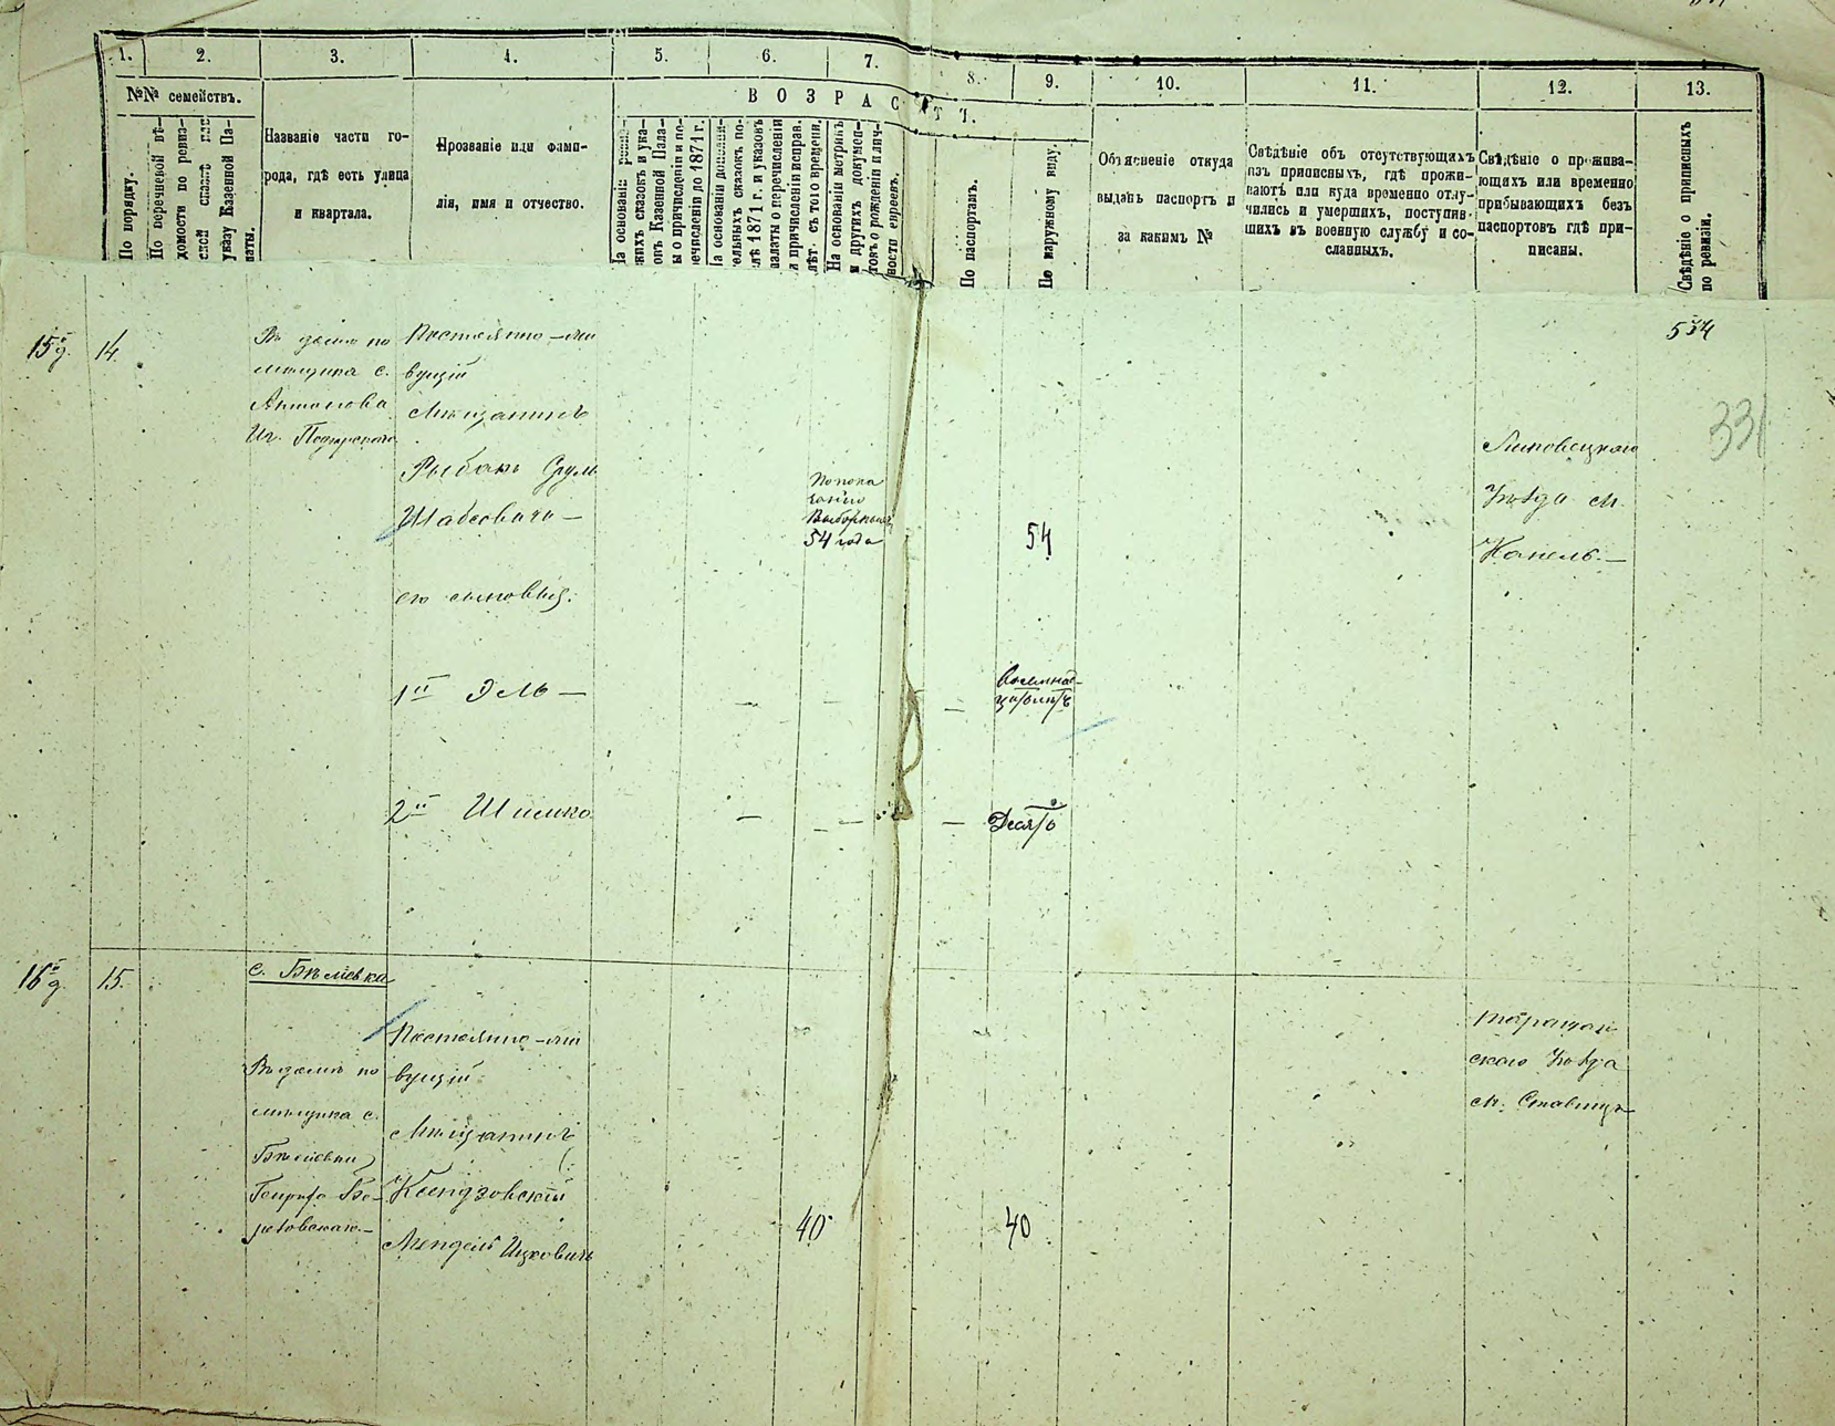 1. 2. 3. 4. 5. 6. 7. 8. 9. 10. 11. 12. 13.
№№ семействъ.
ВОЗРАСТЪ.
По порядку.
По перечневой вѣ-
домости по ревиз-
ской сказкѣ или
указу Казенной Па-
латы.
Названіе части го-
рода, гдѣ есть улица
и квартала.
Прозваніе или фами-
лія, имя и отчество.
На основаніи ревиз-
скихъ сказокъ и ука-
зовъ Казенной Пала-
ты о причисленіи и пе-
речисленіи до 1871 г.
На основаніи дополни-
тельныхъ сказокъ по-
слѣ 1871 г. и указовъ
палаты о перечисленіи
и причисленіи исправ.
лѣт. съ того времени.
На основаніи метрикъ
и другихъ докумен-
товъ о рожденіи и лич-
ности евреевъ.
По паспортамъ.
По наружному виду.
Объясненіе откуда
выданъ паспортъ и
за какимъ №
Свѣдѣніе объ отсутствующихъ
изъ приписныхъ, гдѣ прожи-
ваютъ или куда временно отлу-
чились и умершихъ, поступив-
шихъ въ военную службу и со-
сланныхъ.
Свѣдѣніе о прожива-
ющихъ или временно
прибывающихъ безъ
паспортовъ гдѣ при-
писаны.
Свѣдѣніе о приписныхъ
по ревизіи.
554
331
15й д. 14.
Въ домѣ по
мѣщика с.
Антонова
Постоянно-жи
вущій
Мѣщанинъ
Рыбакъ Сруль
Шабсовичъ —
По пока
занію
Выборныхъ
54 года
54
Липовецкаго
Уѣзда м.
Конель. —
его сыновья:
1й Эль —
— — — Восемнад-
цать лѣтъ
2й Шимко
— — — Десять
16й д. 15.
с. Бѣліевка
Постоянно-жи
вущій
Въ домѣ по
мѣщика с.
Бѣліевки
Мѣщанинъ
Ксендзовскій
Мендель Ицковичъ
40
40
Таращан
скаго Уѣзда
м. Ставищъ